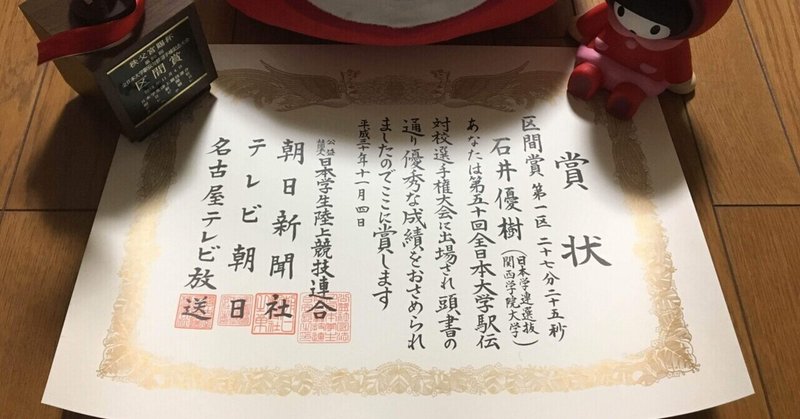 賞状
区間賞 第一区 二十七分二十五秒
石井優樹(日本学連選抜 関西学院大学)
あなたは第五十回全日本大学駅伝
対校選手権大会に出場され頭書の
通り優秀な成績をおさめられ
ましたのでここに賞します
平成三十年十一月四日
公益社団法人日本学生陸上競技連合
朝日新聞社
テレビ朝日
名古屋テレビ放送
秩父宮賜杯
区間賞